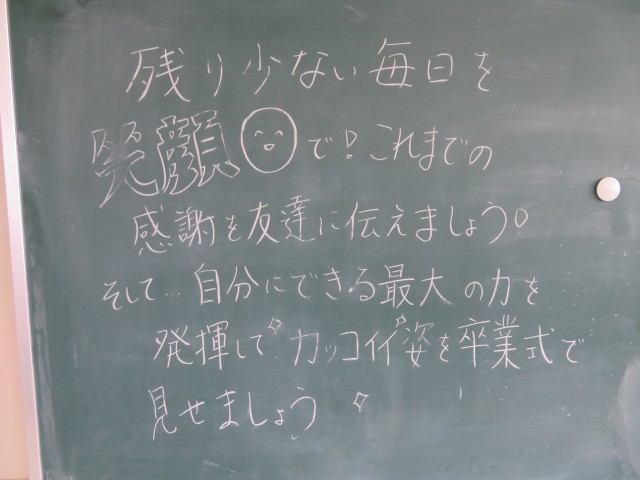 残り少ない毎日を
笑顔で！これまでの
感謝を友達に伝えましょう！
そして…自分にできる最大の力を
発揮してカッコイイ姿を卒業式で
見せましょう